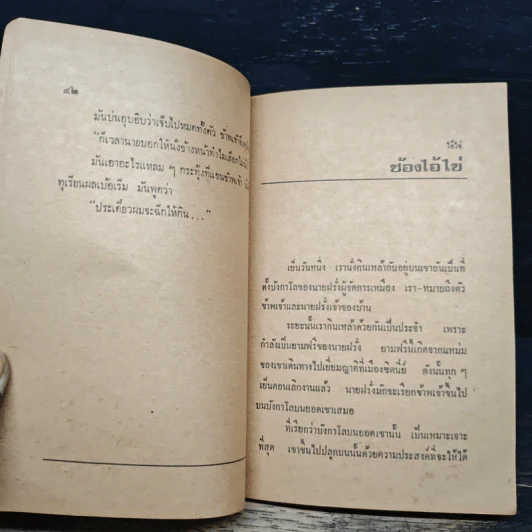 ๔๒
มันบ่นอุบอิบว่าเจ็บไปหมดทั้งตัว ข้าพเจ้า
"ก็เวลานายบอกให้นั่งข้างหน้าทำไมเลือก
มันเอาอะไรแหลม ๆ กระทุ้งที่แขนข้าพเจ้า
ทุเรียนผลเบ้อเริ่ม มันพูดว่า
"ประเดี๋ยวผมจะฉีกให้กิน...."
ไอ้ไข่
ช้องไอ้ไข่
เย็นวันหนึ่ง เรานั่งกินเหล้ากันอยู่บนเขาอันเป็นที่
ตั้งบังกาโลของนายฝรั่งผู้จัดการเหมือง เรา-หมายถึงตัว
ข้าพเจ้าและนายฝรั่งเจ้าของบ้าน
ระยะนั้นเรากินเหล้าด้วยกันเป็นประจำ เพราะ
กำลังเป็นยามฟรีของนายฝรั่ง ยามฟรีนี้เกิดจากแหม่ม
ของเขาเดินทางไปเยี่ยมญาติที่เมืองซิดนีย์ ดังนั้นทุก ๆ
เย็นตอนเลิกงานแล้ว นายฝรั่งมักจะเรียกข้าพเจ้าขึ้นไป
บนบังกาโลบนยอดเขาเสมอ
ที่เรียกว่าบังกาโลบนยอดเขานั้น เป็นเหมาะเจาะ
ที่สุด เขาขึ้นไปปลูกบนนั้นด้วยความประสงค์ที่จะให้ได้